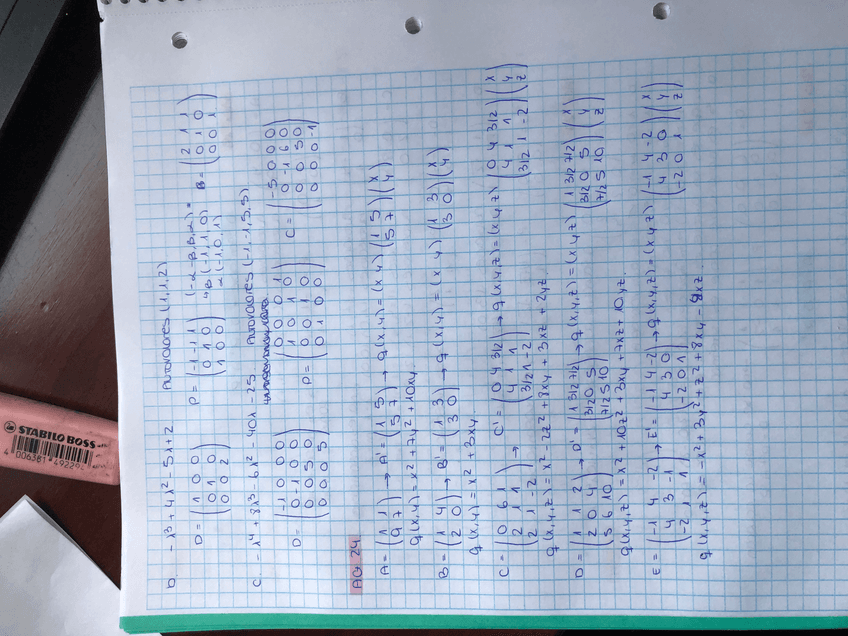 b. -λ³ + 4λ² - 5λ + 2 Autovalores (1, 1, 2)
D = (1 0 0
0 1 0
0 0 2)
P = (-1 -1 1
0 1 0
1 0 0)
(-α-β, β, α) =
β (-1, 1, 0)
α (-1, 0, 1)
B = (2 1 1
0 1 0
0 0 1)
c. -λ⁴ + 8λ³ - 6λ² - 40λ - 25 Autovalores (-1, -1, 5, 5)
D = (-1 0 0 0
0 -1 0 0
0 0 5 0
0 0 0 5)
P = (0 0 0 1
1 0 1 0
0 0 1 0
0 1 0 0)
C = (-5 0 0 0
0 -1 6 0
0 0 5 0
0 0 0 -1)
AG 24
A = (1 1
9 7) → A' = (1 5
5 7) → q(x,y) = (x y) (1 5
5 7) (x
y)
q(x,y) = x² + 7y² + 10xy
B = (1 4
2 0) → B' = (1 3
3 0) → q(x,y) = (x y) (1 3
3 0) (x
y)
q(x,y) = x² + 3xy.
C = (0 6 1
2 1 1
2 1 -2) → C' = (0 4 3/2
4 1 1
3/2 1 -2) → q(x,y,z) = (x y z) (0 4 3/2
4 1 1
3/2 1 -2) (x
y
z)
q(x,y,z) = x² - 2z² + 8xy + 3xz + 2yz.
D = (1 1 2
2 0 4
5 6 10) → D' = (1 3/2 7/2
3/2 0 5
7/2 5 10) → q(x,y,z) = (x y z) (1 3/2 7/2
3/2 0 5
7/2 5 10) (x
y
z)
q(x,y,z) = x² + 10z² + 3xy + 7xz + 10yz.
E = (-1 4 -2
4 3 -1
-2 1 1) → E' = (-1 4 -2
4 3 0
-2 0 1) → q(x,y,z) = (x y z) (-1 4 -2
4 3 0
-2 0 1) (x
y
z)
q(x,y,z) = -x² + 3y² + z² + 8xy - xz.
STABILO BOSS
4 006381 49229